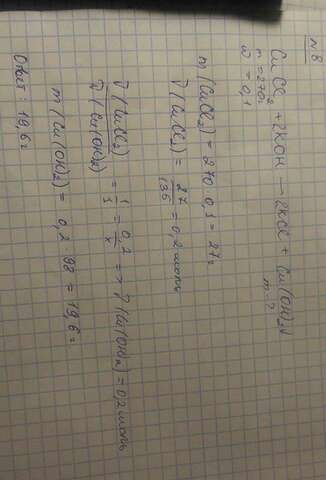 N 8
CuCl₂ + 2KOH → 2KCl + Cu(OH)₂↓
m = 270г m - ?
ω = 0,1
m(CuCl₂) = 270 · 0,1 = 27г
ν(CuCl₂) = 27/136 = 0,2 моль
ν(CuCl₂)/ν(Cu(OH)₂) = 1/1 = 0,2/x => ν(Cu(OH)₂) = 0,2 моль
m(Cu(OH)₂) = 0,2 · 98 = 19,6г
Ответ: 19,6г